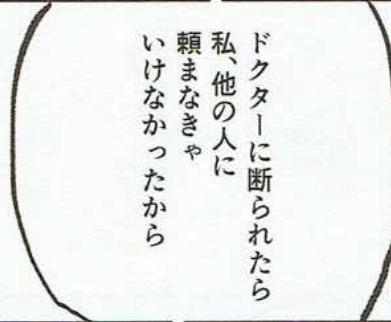 ドクターに断られたら
私、他の人に
頼まなきゃ
いけなかったから